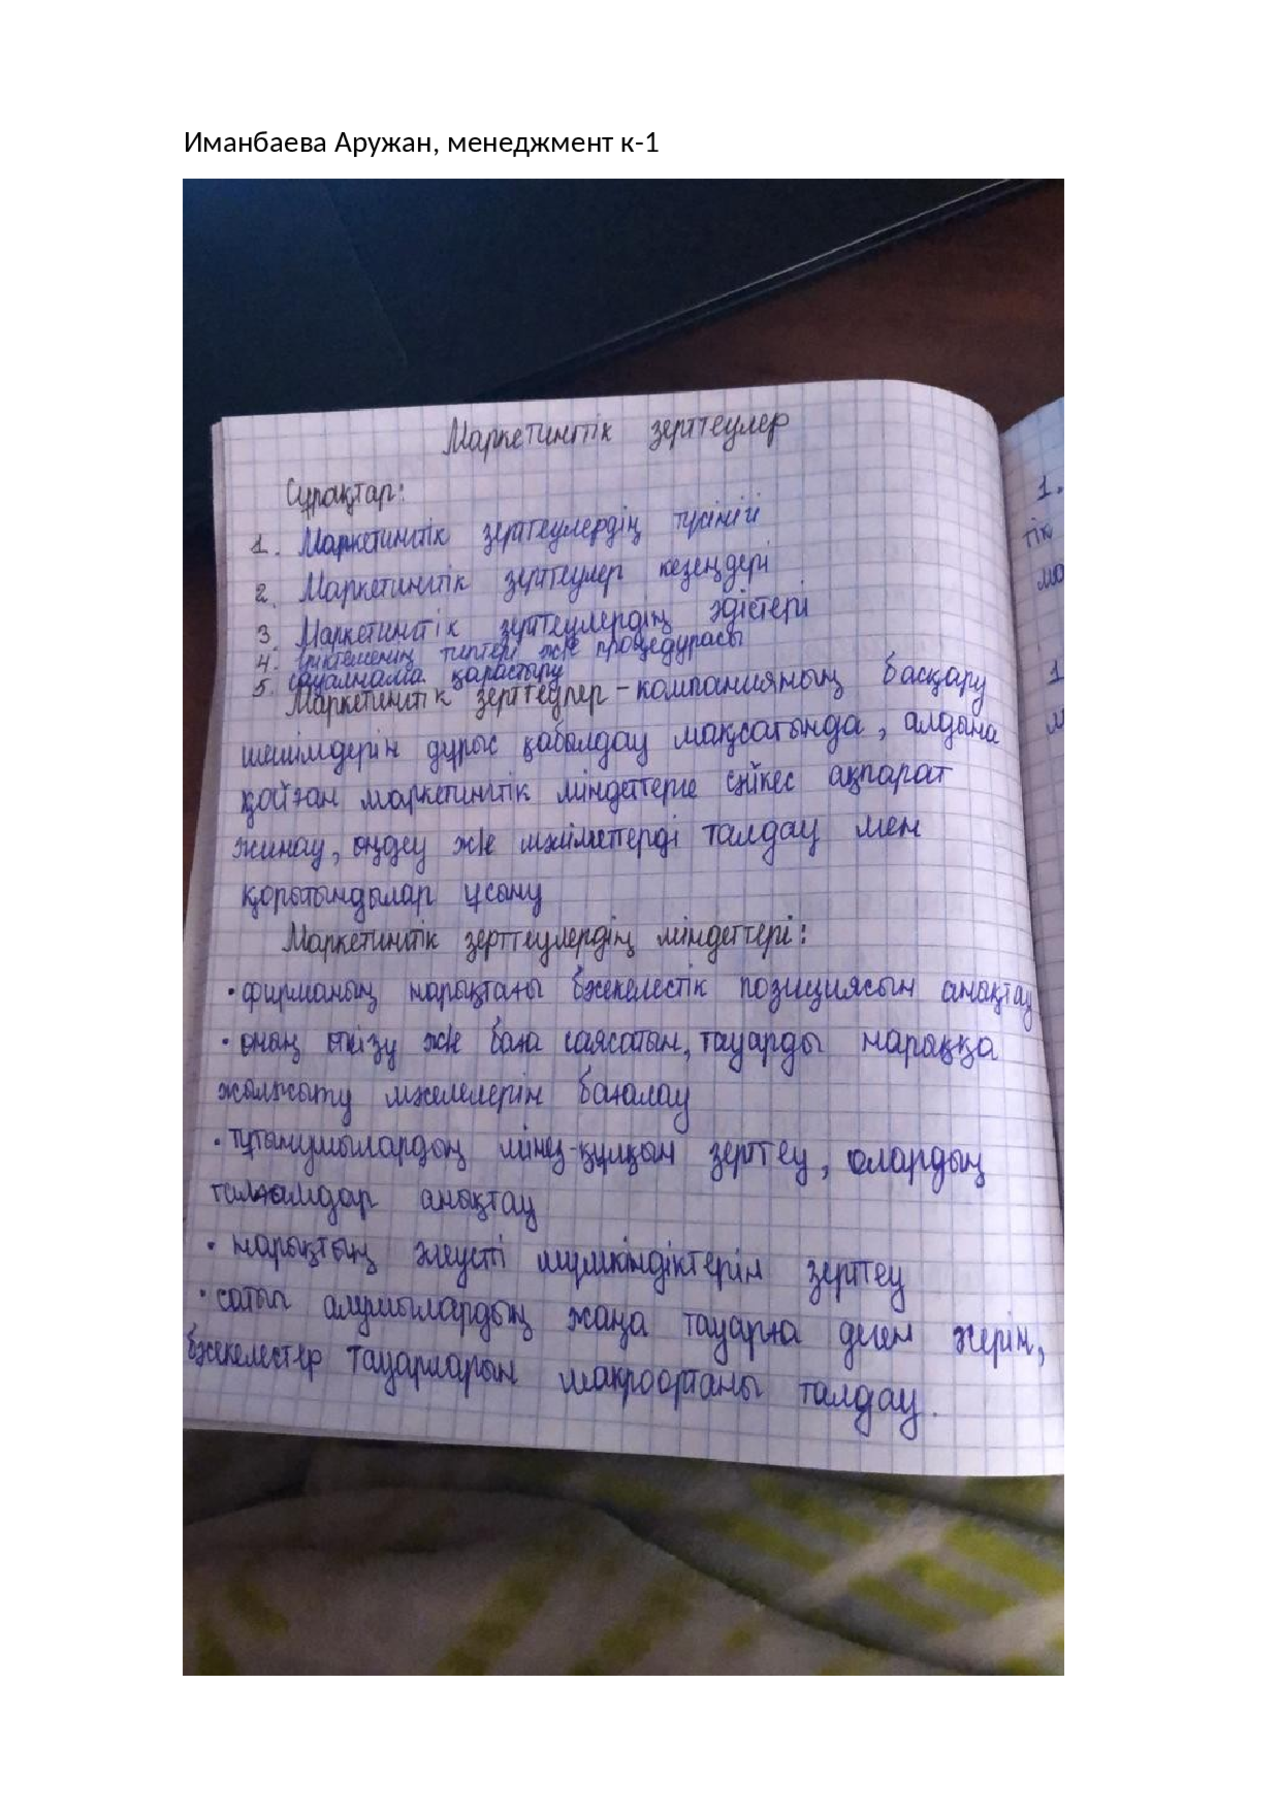 Иманбаева Аружан, менеджмент к-1
Маркетингтік зерттеулер
Сұрақтар:
1. Маркетингтік зерттеулердің түсінігі
1.
2. Маркетингтік зерттеулер кезеңдері
тік
3 Маркетингтік зерттеулердің әдістері
4. іріктеменің типтері және процедурасы
5. сауалнама қарастыру
Маркетингтік зерттеулер – компанияның басқару
шешімдерін дұрыс қабылдау мақсатында, алдына
қойған маркетингтік міндеттерге сәйкес ақпарат
жинау, өңдеу және мәліметтерді талдау мен
қорытындылар ұсыну
Маркетингтік зерттеулердің міндеттері:
• фирманың нарықтағы бәсекелестік позициясын анықтау
• оның өткізу және баға саясатын, тауарды нарыққа
жылжыту мәселелерін бағалау
• тұтынушылардың мінез-құлқын зерттеу, олардың
талғамдар анықтау
• нарықтың әлеуетті мүмкіндіктерін зерттеу
• сатып алушылардың жаңа тауарға деген әсерін,
бәсекелестер тауарларын макроортаны талдау.